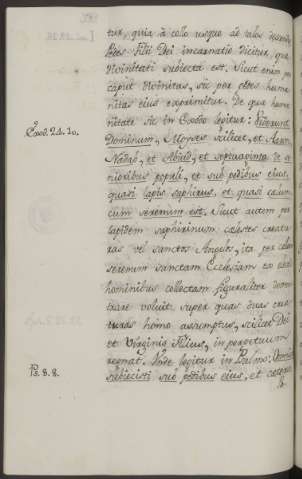 tur, quia à collo usque ad talos
pedes Filii Dei incarnatio dicitur, quæ
divinitati subiecta est. Sicut enim per
caput divinitas, sic per pedes huma-
nitas eius exprimitur. De qua huma-
nitate sic in Exodo legitur: Viderunt
Exod. 24. 10.
Dominum, Moyses scilicet, et Aaron
Nadab, et Abiud, et septuaginta de se-
nioribus populi, et sub pedibus eius,
quasi lapis saphirus, et quasi cælum
cum serenum est. Sicut autem per
lapidem saphirinum cælestes creatu-
ras vel sanctos Angelos, ita per cælum
serenum sanctam Ecclesiam ex
hominibus collectam figuraliter demons-
trare voluit, super quas duas crea-
turas homo assumptus, scilicet Dei
et Virginis Filius, in perpetuum
regnat. Unde legitur in Psalmo: Omnia
Ps. 8. 8.
subiecisti sub pedibus eius, et cætera